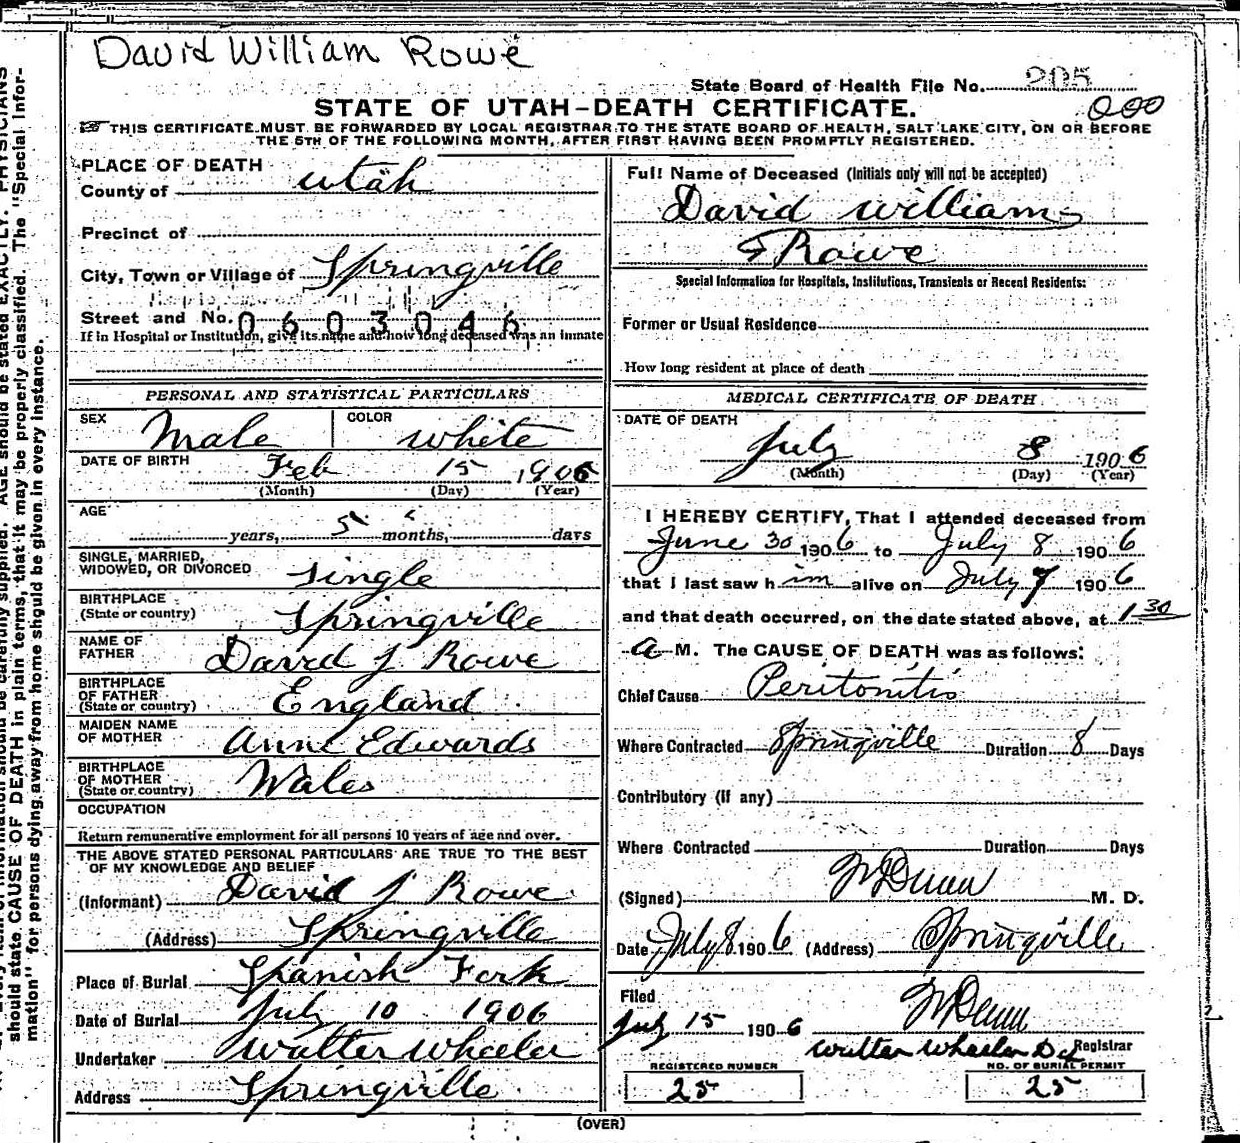 David William Rowe
State Board of Health File No. 205
STATE OF UTAH-DEATH CERTIFICATE.
000
THIS CERTIFICATE MUST BE FORWARDED BY LOCAL REGISTRAR TO THE STATE BOARD OF HEALTH, SALT LAKE CITY, ON OR BEFORE
THE 5TH OF THE FOLLOWING MONTH, AFTER FIRST HAVING BEEN PROMPTLY REGISTERED.
PLACE OF DEATH
County of Utah
Precinct of
City, Town or Village of Springville
Street and No. 0603046
If in Hospital or Institution, give its name and how long deceased was an inmate
PERSONAL AND STATISTICAL PARTICULARS
SEX Male COLOR white
DATE OF BIRTH Feb 15 1906
(Month) (Day) (Year)
AGE
years, 5 months, days
SINGLE, MARRIED,
WIDOWED, OR DIVORCED Single
BIRTHPLACE
(State or country) Springville
NAME OF
FATHER David J Rowe
BIRTHPLACE
OF FATHER
(State or country) England
MAIDEN NAME
OF MOTHER Anne Edwards
BIRTHPLACE
OF MOTHER
(State or country) Wales
OCCUPATION
Return remunerative employment for all persons 10 years of age and over.
THE ABOVE STATED PERSONAL PARTICULARS ARE TRUE TO THE BEST
OF MY KNOWLEDGE AND BELIEF
(Informant) David J Rowe
(Address) Springville
Place of Burial Spanish Fork
Date of Burial July 10 1906
Undertaker Walter Wheeler
Address Springville
Full Name of Deceased (Initials only will not be accepted)
David William
Rowe
Special Information for Hospitals, Institutions, Transients or Recent Residents:
Former or Usual Residence
How long resident at place of death
MEDICAL CERTIFICATE OF DEATH
DATE OF DEATH
July 8 1906
(Month) (Day) (Year)
I HEREBY CERTIFY, That I attended deceased from
June 30 1906 to July 8 1906
that I last saw him alive on July 7 1906
and that death occurred, on the date stated above, at 1 30
a M. The CAUSE OF DEATH was as follows:
Chief Cause Peritonitis
Where Contracted Springville Duration 8 Days
Contributory (if any)
Where Contracted Duration Days
(Signed) Dunn M. D.
Date July 8 1906 (Address) Springville
Filed
July 15 1906 Dunn
Walter Wheeler Registrar
REGISTERED NUMBER
25
NO. OF BURIAL PERMIT
25
(OVER)
AGE should be stated EXACTLY. PHYSICIANS
should state CAUSE OF DEATH in plain terms, that it may be properly classified. The "Special Infor-
mation" for persons dying away from home should be given in every instance.